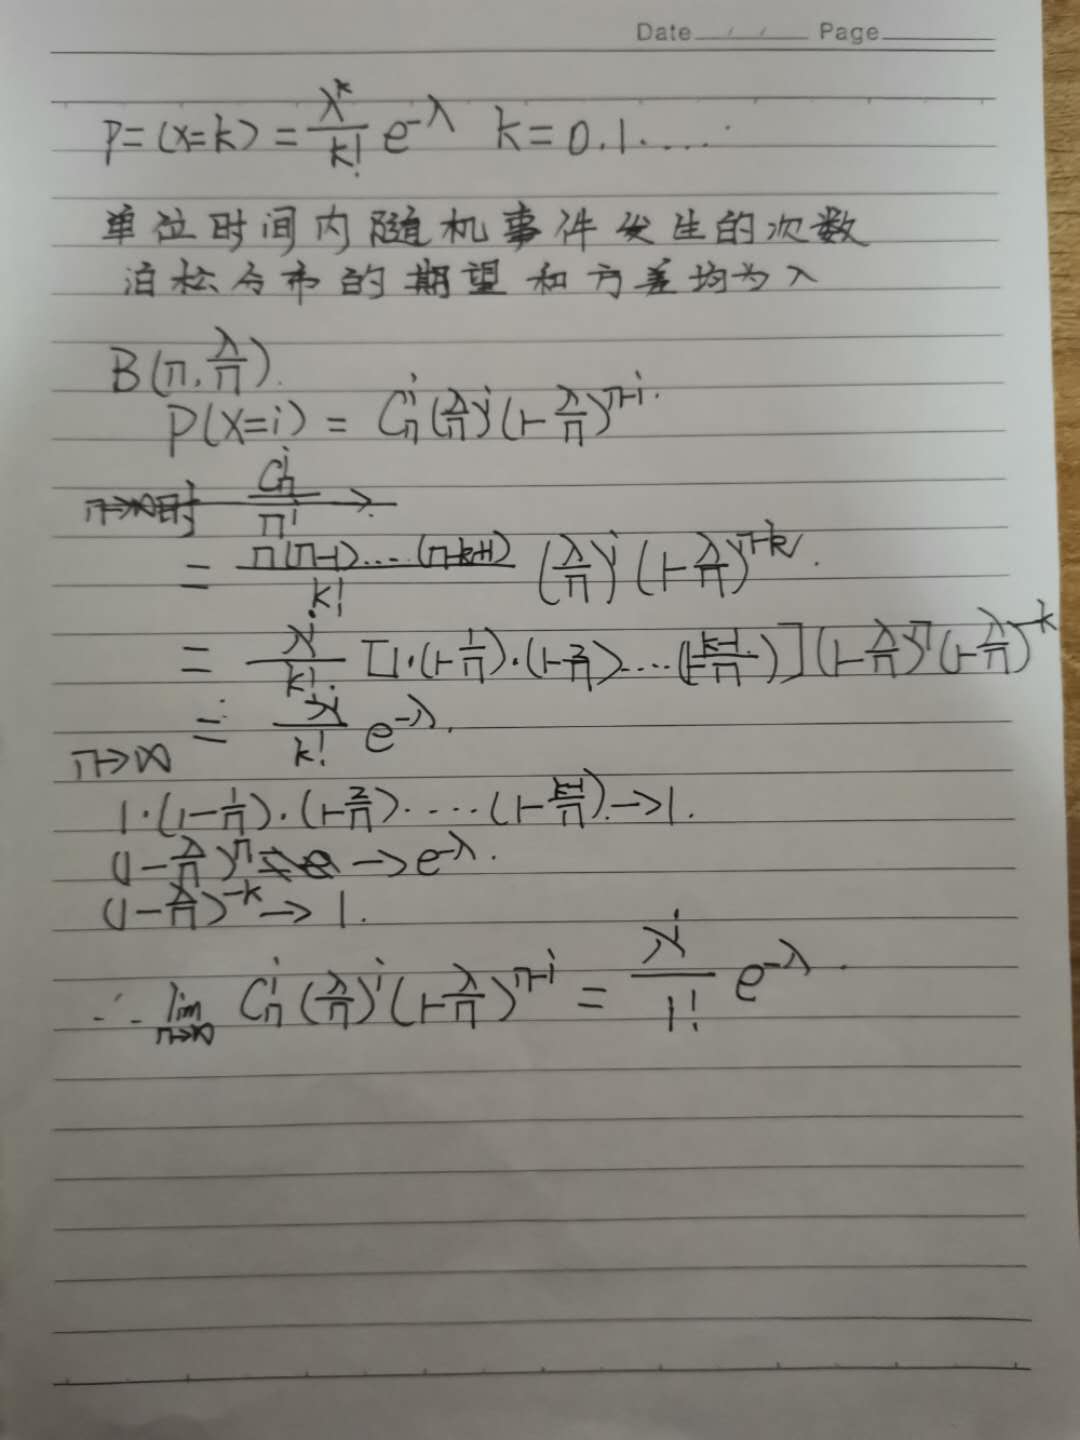 Date / / Page
P=(x=k)=\frac{λ^k}{k!}e^{-λ} k=0.1.....
单位时间内随机事件发生的次数
泊松分布的期望和方差均为λ
B(n.\frac{λ}{n}).
P(X=i)=C_n^i(\frac{λ}{n})^i(1-\frac{λ}{n})^{n-i}.
n→∞时 \frac{C_n^i}{n^i}→.
=\frac{n(n-1)....(n-k+1)}{k!}(\frac{λ}{n})^i(1-\frac{λ}{n})^{n-k}.
=\frac{λ^i}{k!}[1·(1-\frac{1}{n})·(1-\frac{2}{n})....(1-\frac{k-1}{n})](1-\frac{λ}{n})^n(1-\frac{λ}{n})^{-k}
n→∞ =\frac{λ^i}{k!}e^{-λ}.
1·(1-\frac{1}{n})·(1-\frac{2}{n})·....(1-\frac{k-1}{n})→1.
(1-\frac{λ}{n})^n→e^{-λ}.
(1-\frac{λ}{n})^{-k}→1.
∴\lim_{n→∞}C_n^i(\frac{λ}{n})^i(1-\frac{λ}{n})^{n-i}=\frac{λ^i}{1!}e^{-λ}.